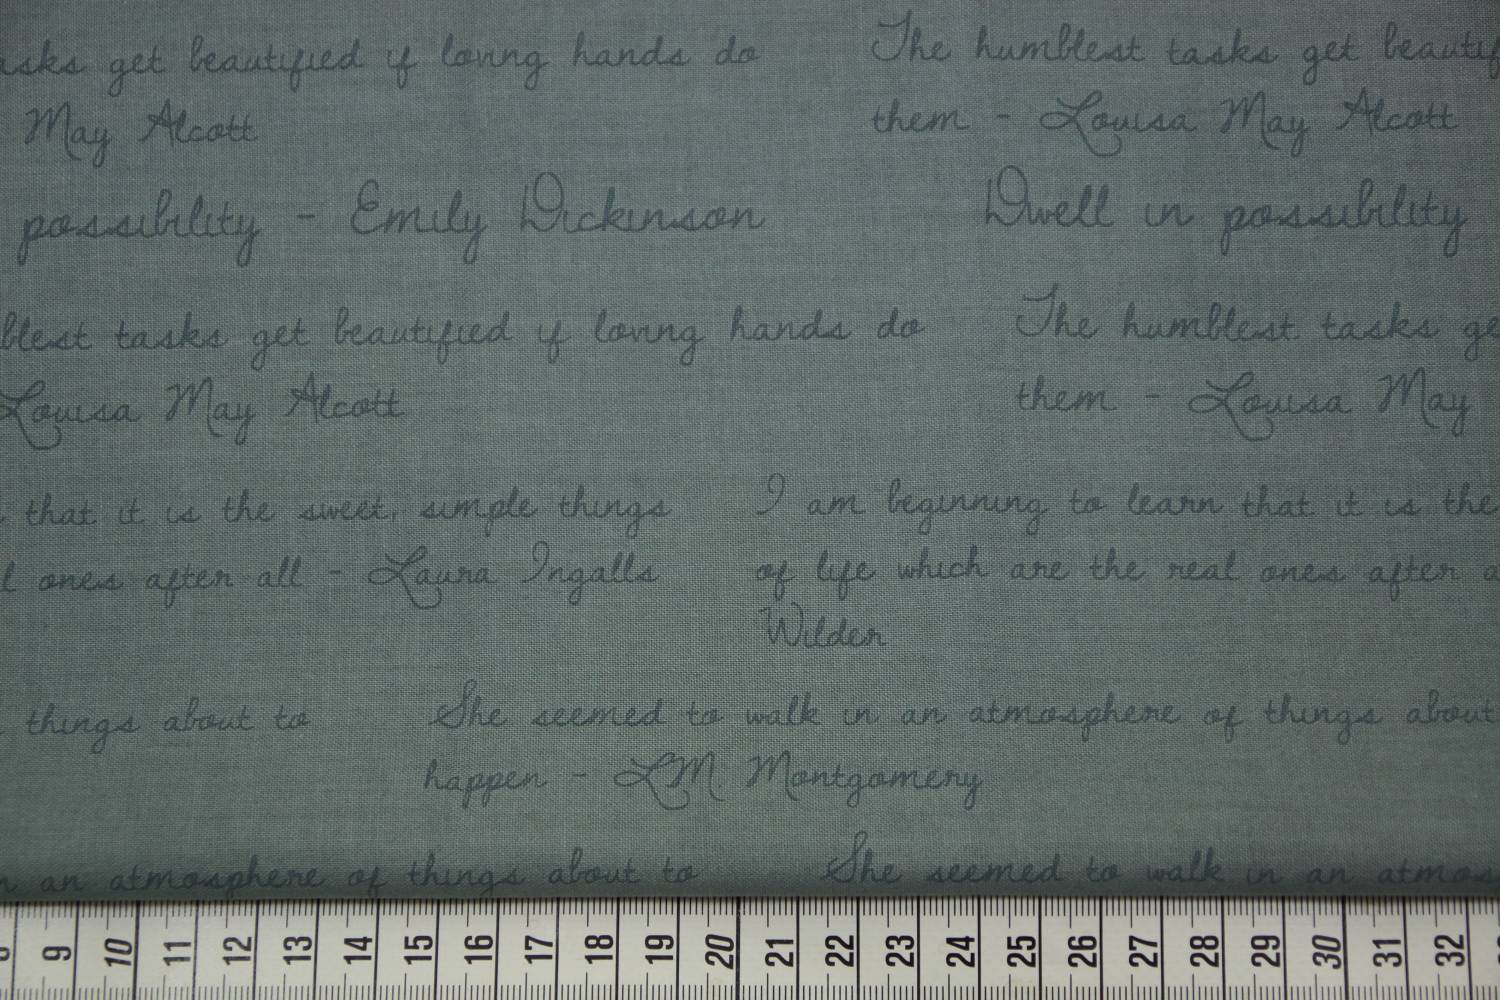 asks get beautified if loving hands do The humblest tasks get beautif
May Alcott them - Louisa May Alcott
possibility - Emily Dickinson Dwell in possibility
blest tasks get beautified if loving hands do The humblest tasks ge
Louisa May Alcott them - Louisa May
that it is the sweet, simple things I am beginning to learn that it is the
l ones after all - Laura Ingalls of life which are the real ones after a
Wilder
things about to She seemed to walk in an atmosphere of things about
happen - L.M. Montgomery
n an atmosphere of things about to She seemed to walk in an atmos
9 10 11 12 13 14 15 16 17 18 19 20 21 22 23 24 25 26 27 28 29 30 31 32